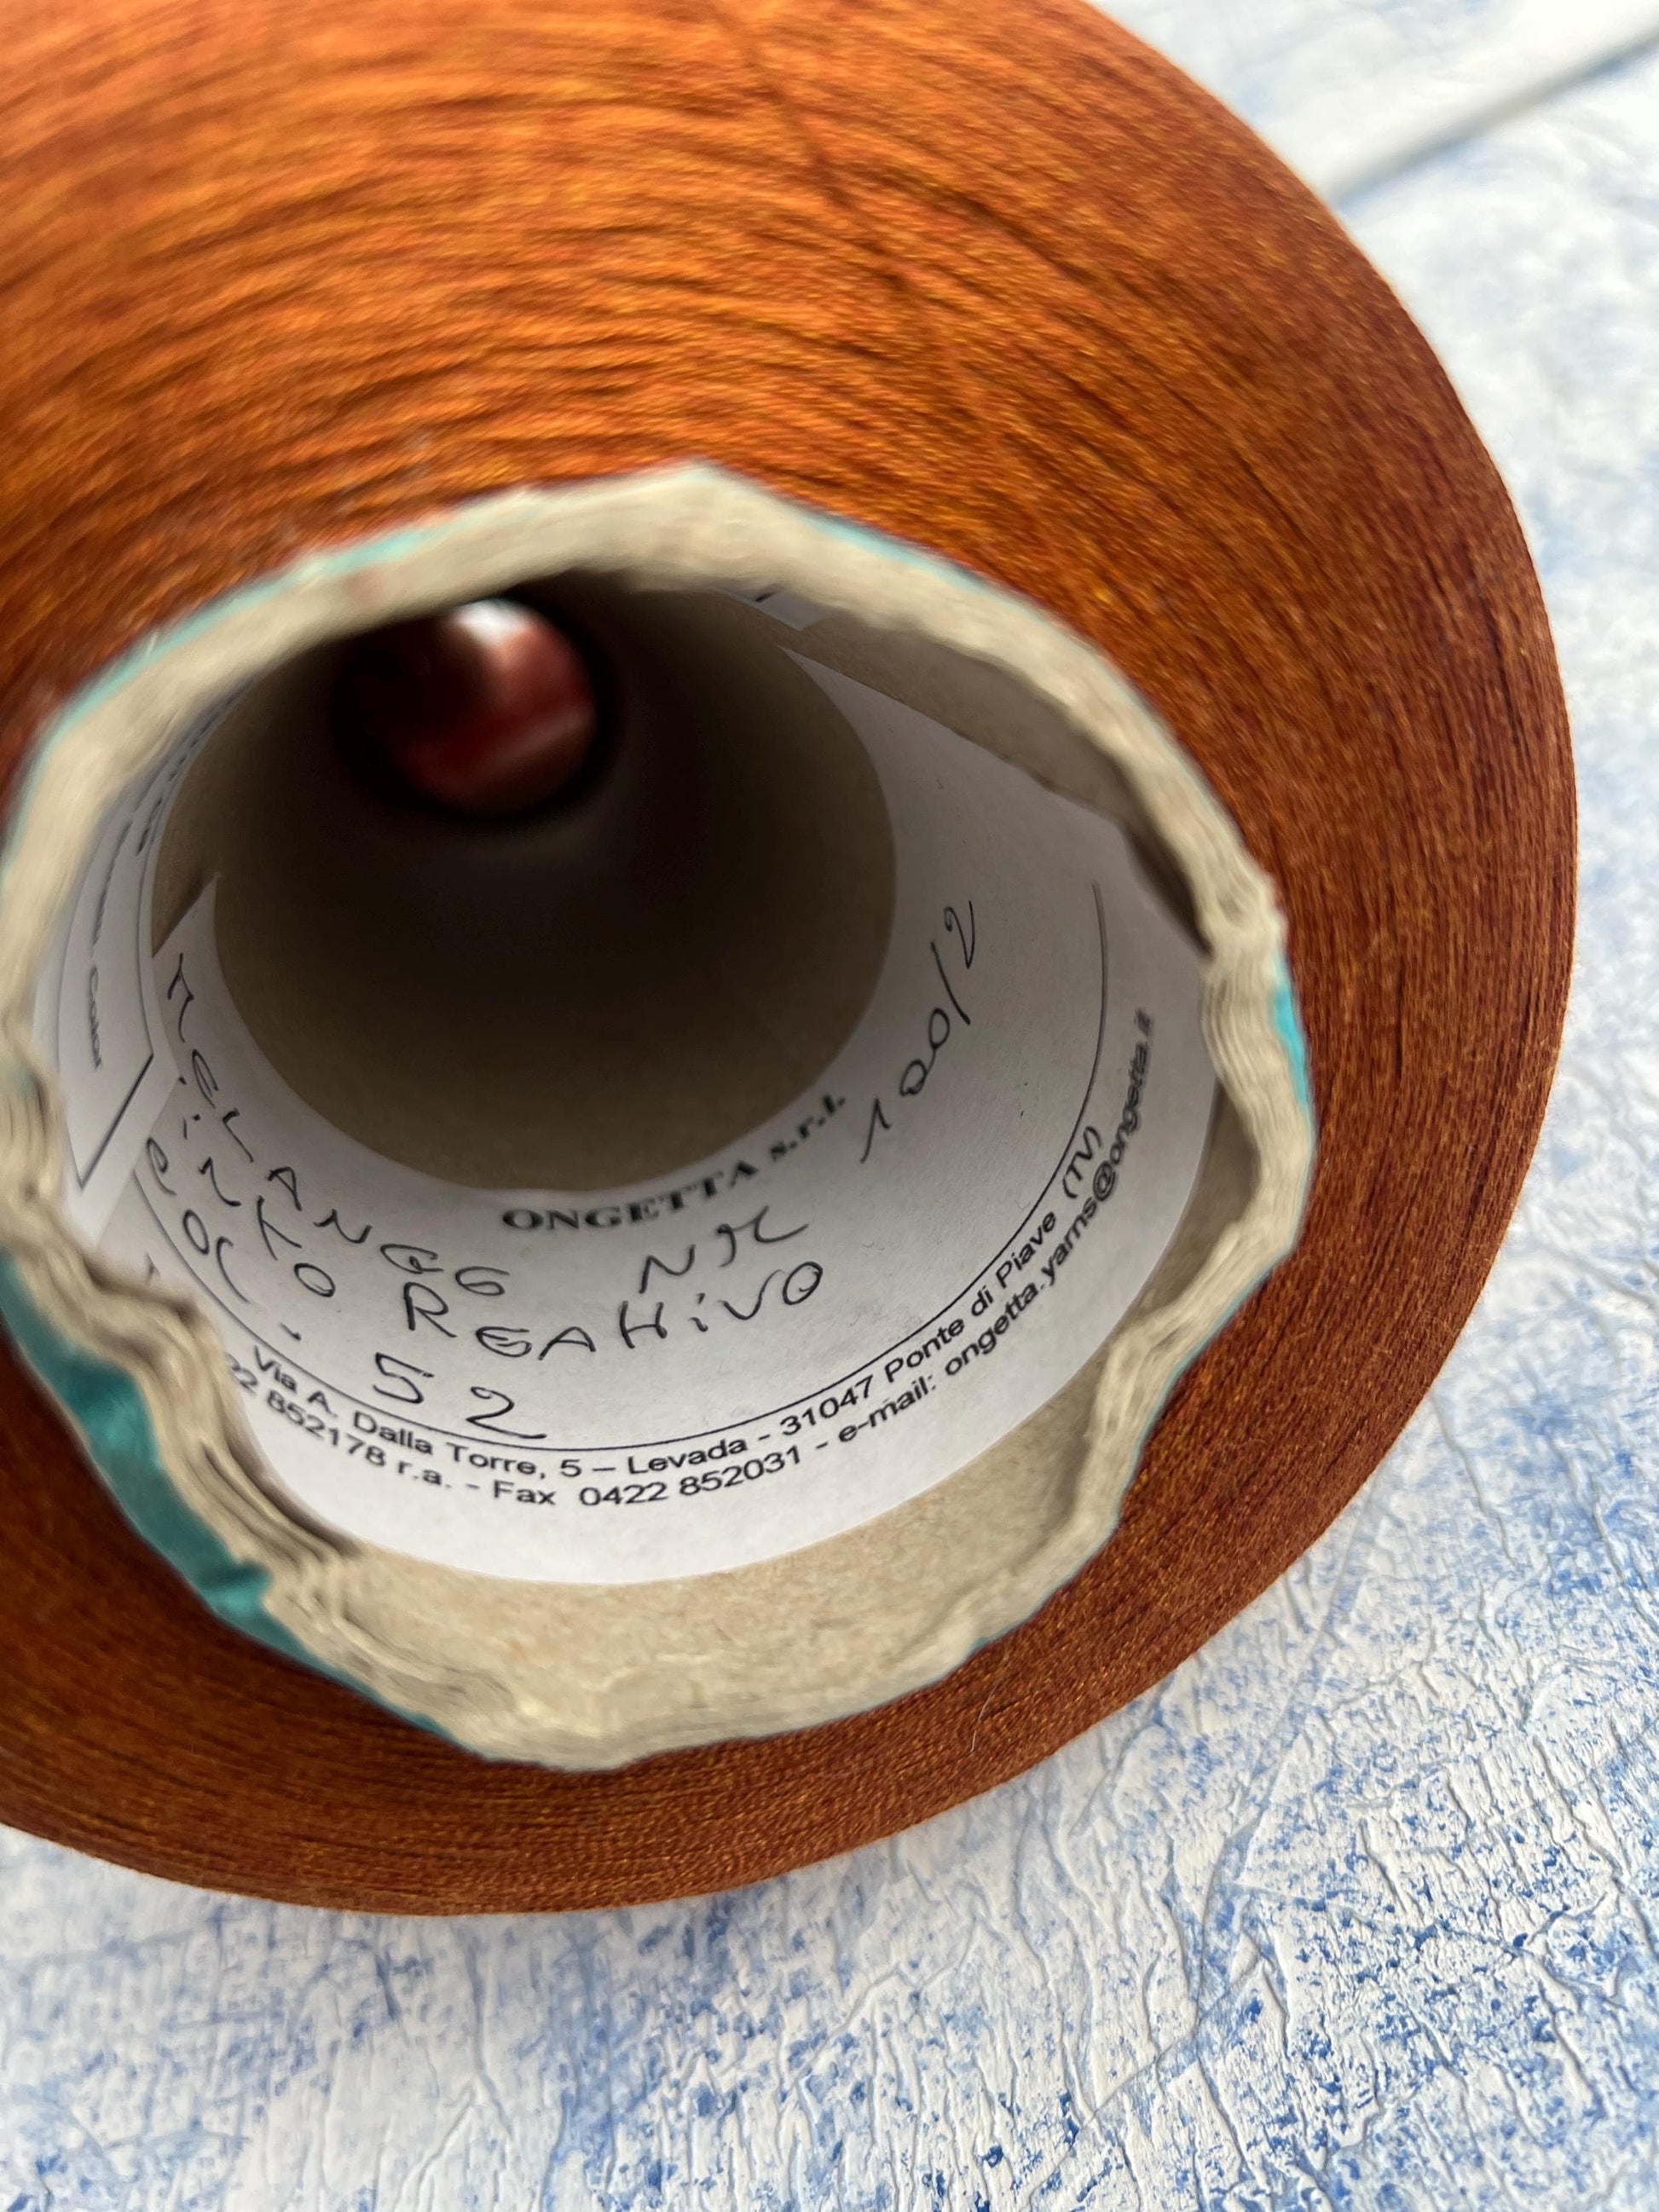 ONGETTA s.r.l.
MELANGE NM 100/2
REAHIVO
COL. 52
Via A. Dalla Torre, 5 – Levada - 31047 Ponte di Piave (TV)
22 852178 r.a. - Fax 0422 852031 - e-mail: ongetta.yarns@ongetta.it